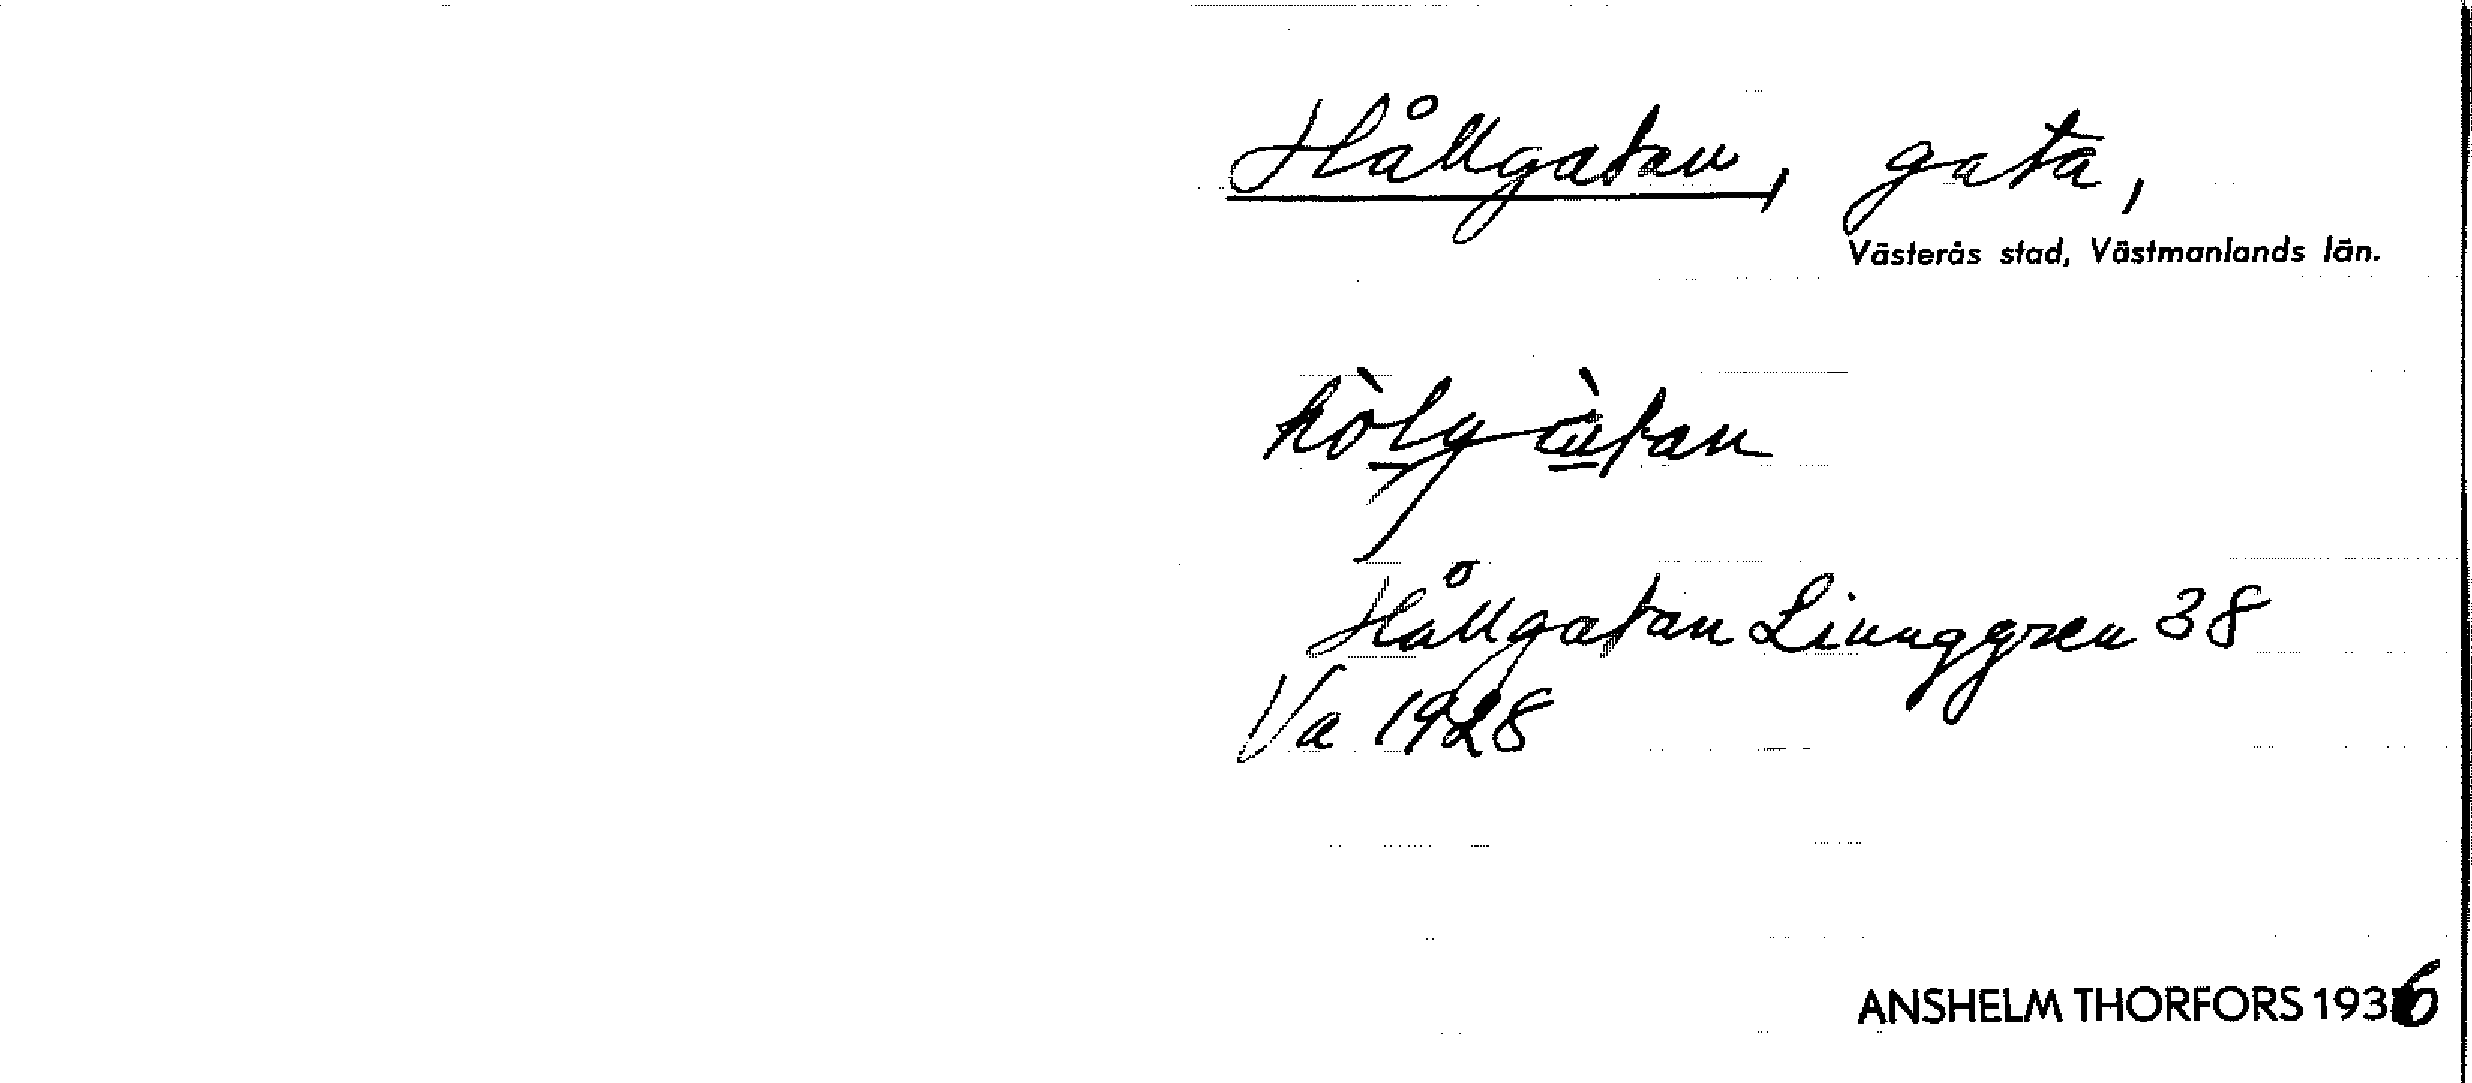 Hållgatan, gata,
Västerås stad, Västmanlands län.
hòlgàtan
Hållgatan Ljunggren 38
Va 1928
ANSHELM THORFORS 1936